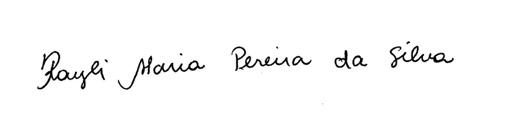 Rayli Maria Pereira da Silva